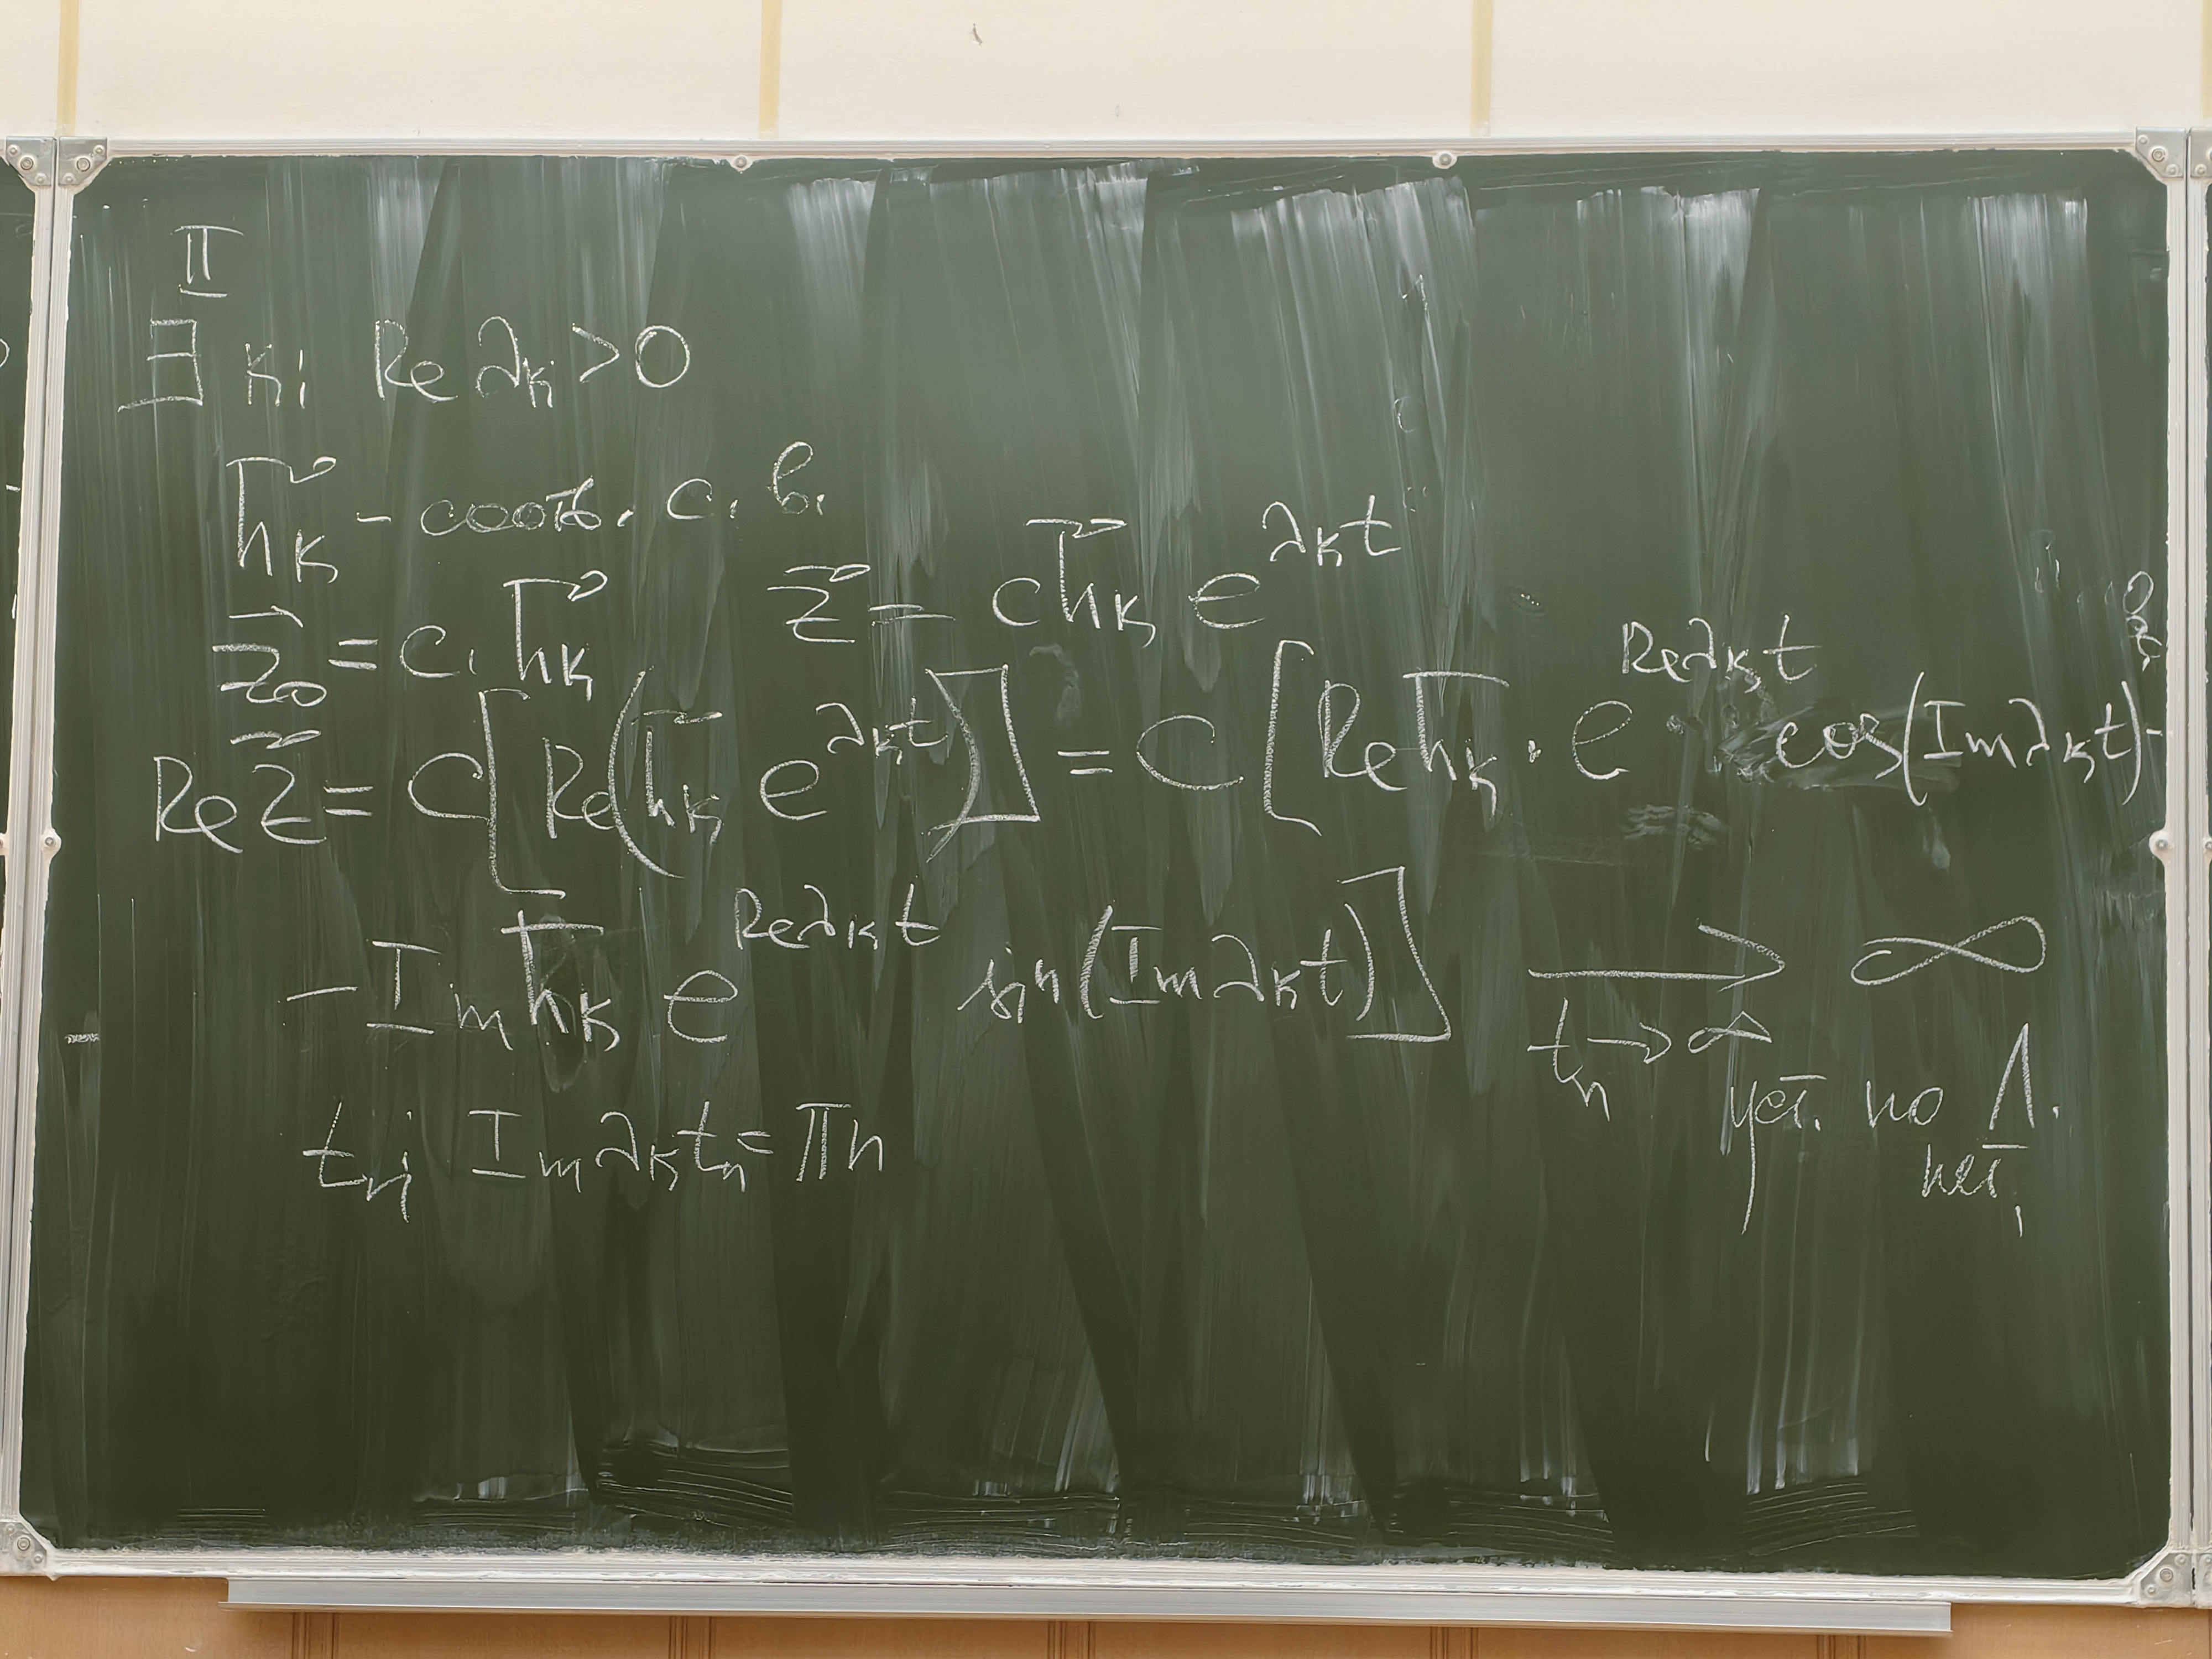 II
∃ k: Re λₖ > 0
h⃗ₖ - соотв. с. в.
z⃗₀ = c · h⃗ₖ   z⃗ = c h⃗ₖ e^{λₖt}
Re z⃗ = C [Re(h⃗ₖ e^{λₖt})] = C [Re h⃗ₖ · e^{Re λₖt} cos(Im λₖt) -
- Im h⃗ₖ e^{Re λₖt} sin(Im λₖt)] ⟶ ∞
tₙ → ∞
уст. по Л.
нет.
tₙ: Im λₖtₙ = πn